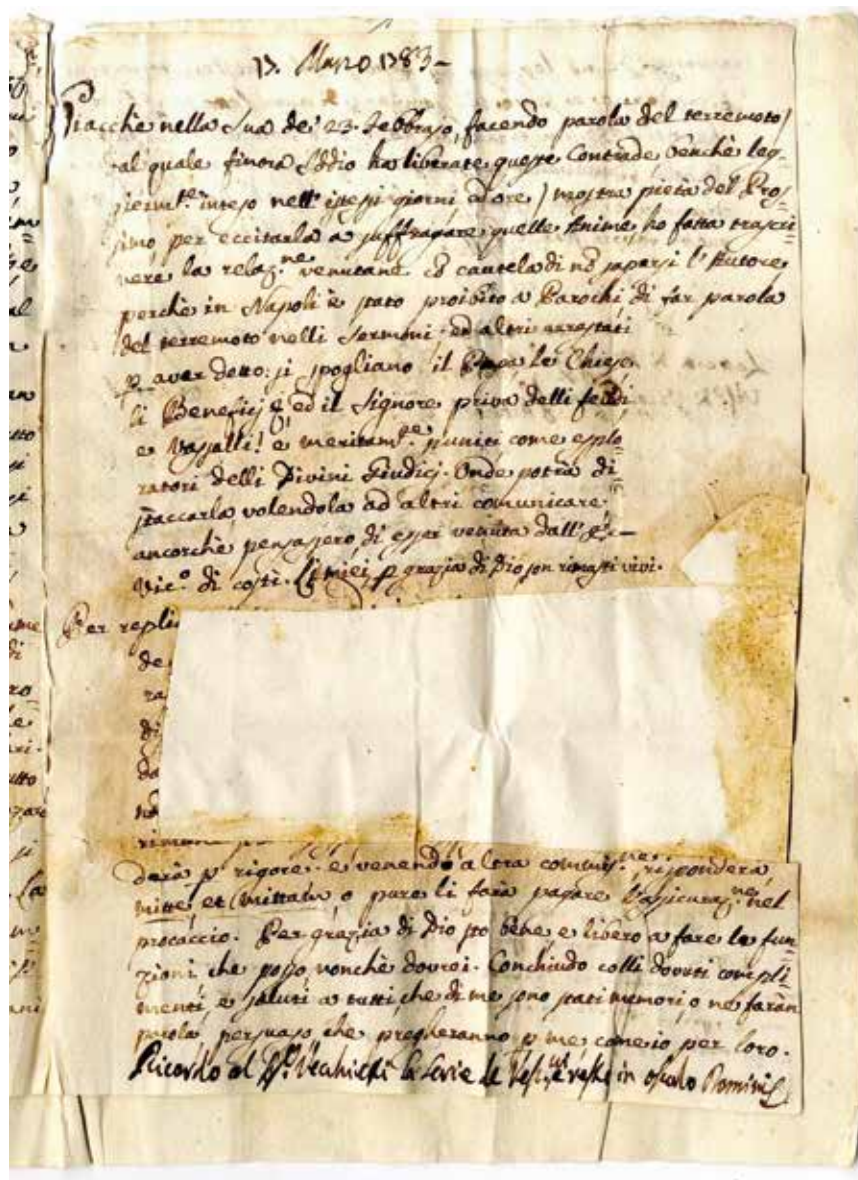 13. Marzo 1783 -
Giacchè nella Sua de' 23. Febbrajo, facendo parola del terremoto (
dal quale finora Iddio ha liberate queste Contrade, benchè leg=
gierm.te inteso nell'istessi giorni ed ore) mostra pietà del Pros=
simo, per eccitarla a suffragare quelle Anime ho fatta trascri=
vere la relaz.ne venutane cõ cautela di nõ sapersi l'Autore
perchè in Napoli è stato proibito a Parochi di far parola
del terremoto nelli Sermoni, ed altri arrestati
p aver detto: si spogliano il Papa le Chiese
li Beneficj ed il Signore priva delli feudi
e Vassalli! e meritam.te puniti come esplo=
ratori delli Divini Giudicj. Onde potrà di=
staccarla, volendola ad altri comunicare,
ancorchè pensassero di esser venuta dall'
Vic.o di costì. Li miei p grazia di Dio son rimasti vivi.
Per repli
de
ra
di
da
nõ
rimane
derà p rigore. e venendo altra commis.ne, risponderà,
mitte, et mittam o pure li farà pagare l'assicuraz.ne nel
procaccio. Per grazia di Dio sto bene, e libero a fare le fun=
zioni che posso, nonchè dovrei. Conchiudo colli dovuti compli=
menti, e saluti a tutti, che di me sono stati memori, o ne faran
parola persuaso che pregheranno p me, come io per loro.
Ricordo al Vecchietti la Serie de Vesc.vi e resto in osculo Domini